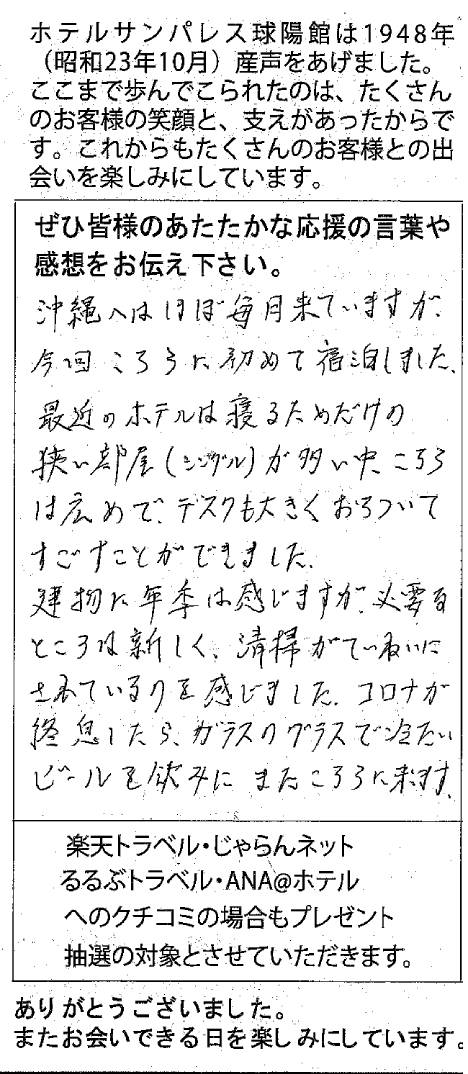 ホテルサンパレス球陽館は1948年
（昭和23年10月）産声をあげました。
ここまで歩んでこられたのは、たくさん
のお客様の笑顔と、支えがあったからで
す。これからもたくさんのお客様との出
会いを楽しみにしています。
ぜひ皆様のあたたかな応援の言葉や
感想をお伝え下さい。
沖縄へはほぼ毎月来ていますが、
今回こちらに初めて宿泊しました。
最近のホテルは寝るためだけの
狭い部屋(シングル)が多い中、こちら
は広めで、デスクも大きくおちついて
すごすことができました。
建物に年季は感じますが、必要な
ところは新しく、清掃がていねいに
されているのを感じました。コロナが
終息したら、ガラスのグラスで冷たい
ビールを飲みにまたこちらに来ます。
楽天トラベル・じゃらんネット
るるぶトラベル・ANA@ホテル
へのクチコミの場合もプレゼント
抽選の対象とさせていただきます。
ありがとうございました。
またお会いできる日を楽しみにしています。